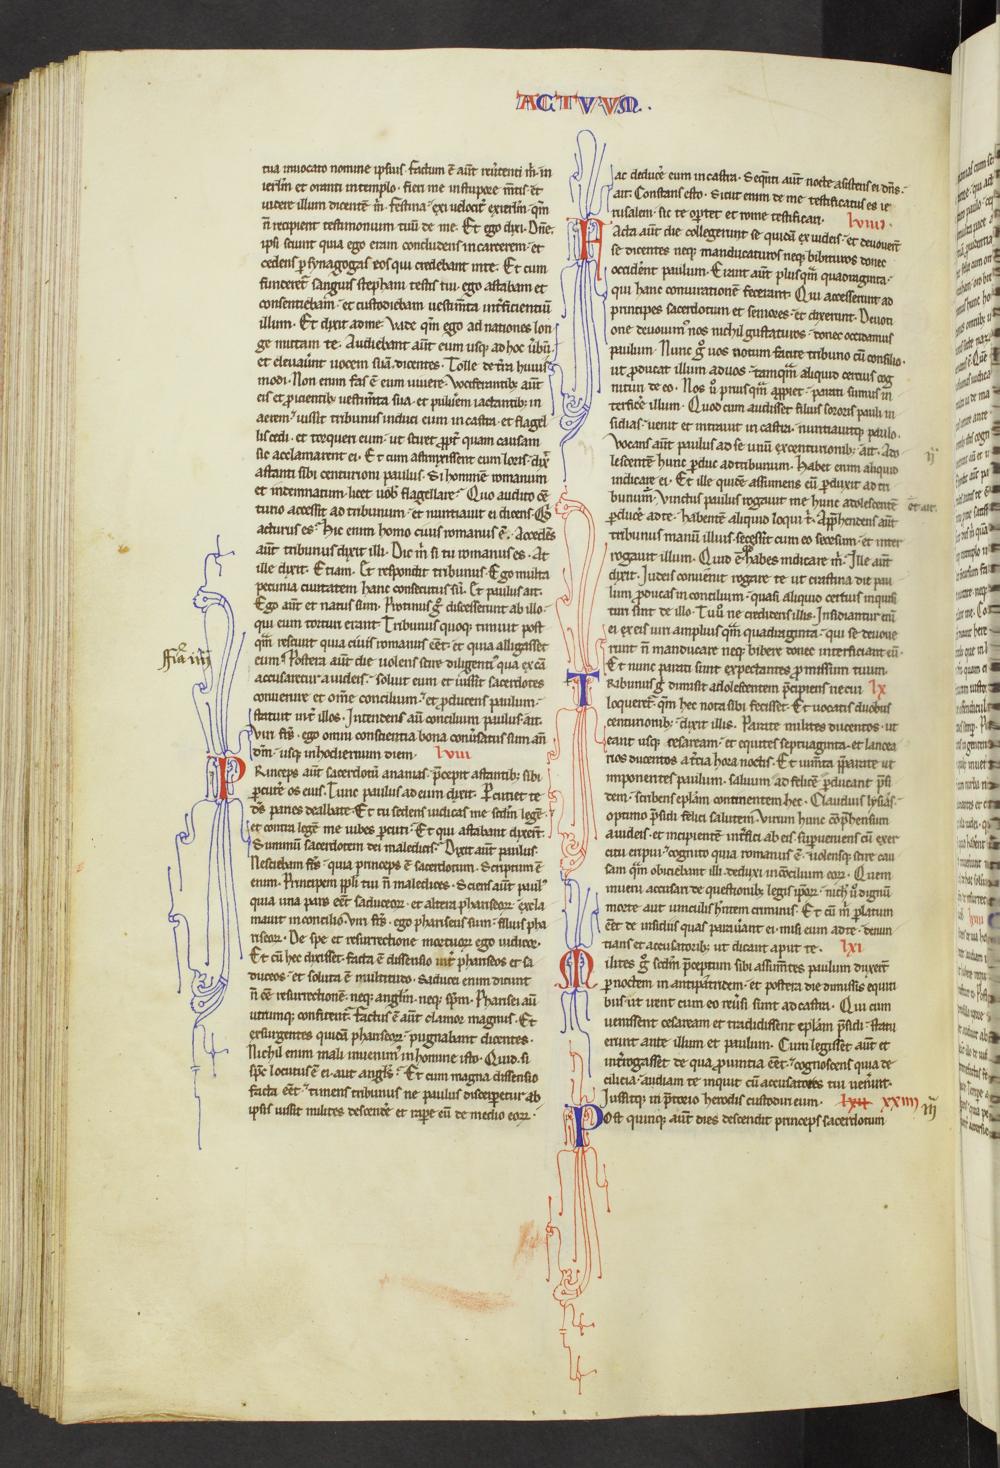 ACTUUM.
tua inuocato nomine ipsius. factum ē aūt reūtenti m̄ in
ierlm̄ et oranti in templo. fieri me in stupore m̄tis et
uidere illum dicentē m̄. festina. exi uelocit̄ ex ierlm̄. qm̄
n̄ recipient testimonium tuū de me. Et ego dixi. Dn̄e.
ipsi sciunt quia ego eram concludens in carcerem. et
cedens ꝑ synagogas eos qui credebant in te. Et cum
funderet̄ sanguis stephani testis tui. ego astabam et
consentiebam. et custodiebam uestim̄ta int̄ficientiū
illum. Et dixit ad me. Vade qm̄ ego ad nationes lon
ge mittam te. Audiebant aūt eum usq; ad hoc ūbū.
et eleuaūnt uocem suā dicentes. Tolle de t̄ra huius
modi. Non enim fas ē eum uiuere. Vociferantib; aūt
eis et ꝓicientib; uestim̄ta sua. et puluerem iactantib; in
aerem. iussit tribunus induci eum in castra. et flagel
lis cedi. et torqueri eum. ut sciret ꝓpt̄ quam causam
sic acclamarent ei. Et cum astrinxissent eum loris. dix̄
astanti sibi centurioni paulus. Si hominē romanum
et indemnatum. licet uob̄ flagellare. Quo audito cē
turio accessit ad tribunum. et nuntiauit ei dicens. Q̇
acturus es. hic enim homo ciuis romanus ē. Accedēs
aūt tribunus dixit illi. Dic m̄ si tu romanus es. At
ille dixit. Etiam. Et respondit tribunus. Ego multa
pecunia ciuitatem hanc consecutus sū. Et paulus ait.
Ego aūt et natus sum. Protinus ḡ discesserunt ab illo.
qui eum torturi erant. Tribunus quoq; timuit post
qm̄ resciuit quia ciuis romanus eēt. et quia alligasset
eum. Postera aūt die uolens scire diligenti᷒ qua ex cā
accusaretur a iudeis. soluit eum et iussit sacerdotes
conuenire et om̄e concilium. et ꝓducens paulum.
statuit int̄ illos. Intendens aū concilium paulus ait.
Viri fr̄s. ego omni conscientia bona conūsatus sum an̄
dm̄. usq; in hodiernum diem. lviii
Rinceps aūt sacerdotū ananias. p̄cepit astantib; sibi
ꝑcutē os eius. Tunc paulus ad eum dixit. Percutiet te
ds̄ paries dealbate. Et tu sedens iudicas me scdm̄ legē.
et contra legē me iubes ꝑcuti. Et qui astabant dixert̄.
Summū sacerdotem dei maledicis. Dixit aūt paulus.
Nesciebam fr̄s. quia princeps ē sacerdotum. Scriptum ē
enim. Principem ppli tui n̄ maledices. Sciens aūt paul᷒
quia una pars eēt saduceoꝝ. et altera phariseoꝝ. excla
mauit in concilio. Viri fr̄s. ego phariseus sum. filius pha
riseoꝝ. De spe et resurrectione mortuoꝝ ego iudicor.
Et cū hec dixisset. facta ē dissensio int̄ phariseos et sa
duceos. et soluta ē multitudo. Saducei enim dicunt
n̄ eē resurrectionē. neq; anglm̄. neq; spm̄. Pharisei aū
utrumq; confitent̄. factus ē aūt clamor magnus. Et
exsurgentes quidā phariseoꝝ. pugnabant dicentes.
Nichil enim mali inuenim᷒ in homine isto. Quid. si
sp̄c locutus ē ei. aut angls̄. Et cum magna dissensio
facta eēt. timens tribunus ne paulus discerperetur ab
ipsis iussit milites descendē et rapē eū de medio eoꝝ.
ac deducē eum in castra. Seq̄nti aūt nocte assistens ei dn̄s.
ait. Constans esto. Sicut enim de me testificatus es ie
rusalem. sic te oportet et rome testificari. lviiii.
Acta aūt die collegerunt se quidā ex iudeis. et deuouert̄
se dicentes neq; manducaturos neq; bibituros donec
occident̄ paulum. Erant aūt plus qm̄ quadraginta.
qui hanc coniurationē fecerant. Qui accesserunt ad
principes sacerdotum et seniores. et dixerunt. Deuoti
one deuouim᷒ nos nichil gustaturos. donec occidamus
paulum. Nunc ḡ uos notum facite tribuno cū consilio.
ut ꝓducat illum ad uos. tamqm̄ aliquid certius cog
nituri de eo. Nos ū priusqm̄ appiet. parati sumus in
terficē illum. Quod cum audisset filius sororis pauli in
sidias. uenit et intrauit in castra. nuntiauitq; paulo.
Vocans aūt paulus ad se unū ex centurionib;. ait. Ado
lescentē hunc ꝑduc ad tribunum. habet enim aliquid
indicare ei. Et ille quidē assumens eū ꝑduxit ad tri
bunum. Vinctus paulus rogauit me hunc adolescentē
ꝑducē ad te. habentē aliquid loqui t̄. Apprehendens aūt
tribunus manū illius. secessit cum eo seorsum. et inter
rogauit illum. Quid ē qd̄ habes indicare m̄. Ille aūt
dixit. Iudeis conuenit rogare te ut crastina die pau
lum ꝓducas in concilium. quasi aliquid certius inquisi
turi sint de illo. Tu ū ne credideris illis. Insidiantur eni
ei ex eis uiri amplius qm̄ quadraginta. qui se deuoue
runt n̄ manducare neq; bibere donec interficiant eū.
Et nunc parati sunt expectantes ꝓmissum tuum.
Tribunus ḡ dimisit adolescentem p̄cipiens ne cui lx
loqueret̄. qm̄ hec nota sibi fecisset. Et uocatis duobus
centurionib;. dixit illis. Parate milites ducentos. ut
eant usq; cesaream. et equites septuaginta. et lancea
rios ducentos a t̄cia hora noctis. Et ium̄ta p̄parate ut
imponentes paulum. saluum ad felicē ꝑducant p̄si
dem. scribens eplām continentem hec. Claudius lysias.
optimo p̄sidi felici salutem. Virum hunc cōp̄hensum
a iudeis. et incipientē int̄fici ab eis. superueniens cū exer
citu eripui. cognito quia romanus ē. uolensq; scire cau
sam qm̄ obiciebant illi. deduxi in concilium eoꝝ. Quem
inueni accusari de questionib; legis ipoꝝ. nich̄ ū dignū
morte aut uinculis hn̄tem criminis. Et cū m̄ ꝑlatum
eēt de insidiis quas parauant ei. misi eum ad te. denun
tians et accusatorib; ut dicant aput te. lxi
Milites ḡ scdm̄ p̄ceptum sibi assum̄tes paulum duxert̄
ꝑ noctem in antipatridem. et postera die dimissis equiti
bus ut irent cum eo reūsi sunt ad castra. Qui cum
uenissent cesaream et tradidissent eplām p̄sidi. statu
erunt ante illum et paulum. Cum legisset aūt et
int̄rogasset de qua ꝓuintia eēt. cognoscens qua de
cilicia. audiam te inquit cū accusatores tui uen̄int.
Iussitq; in p̄torio herodis custodiri eum. lxii xxiiii iij
Post quinq; aūt dies descendit princeps sacerdotum